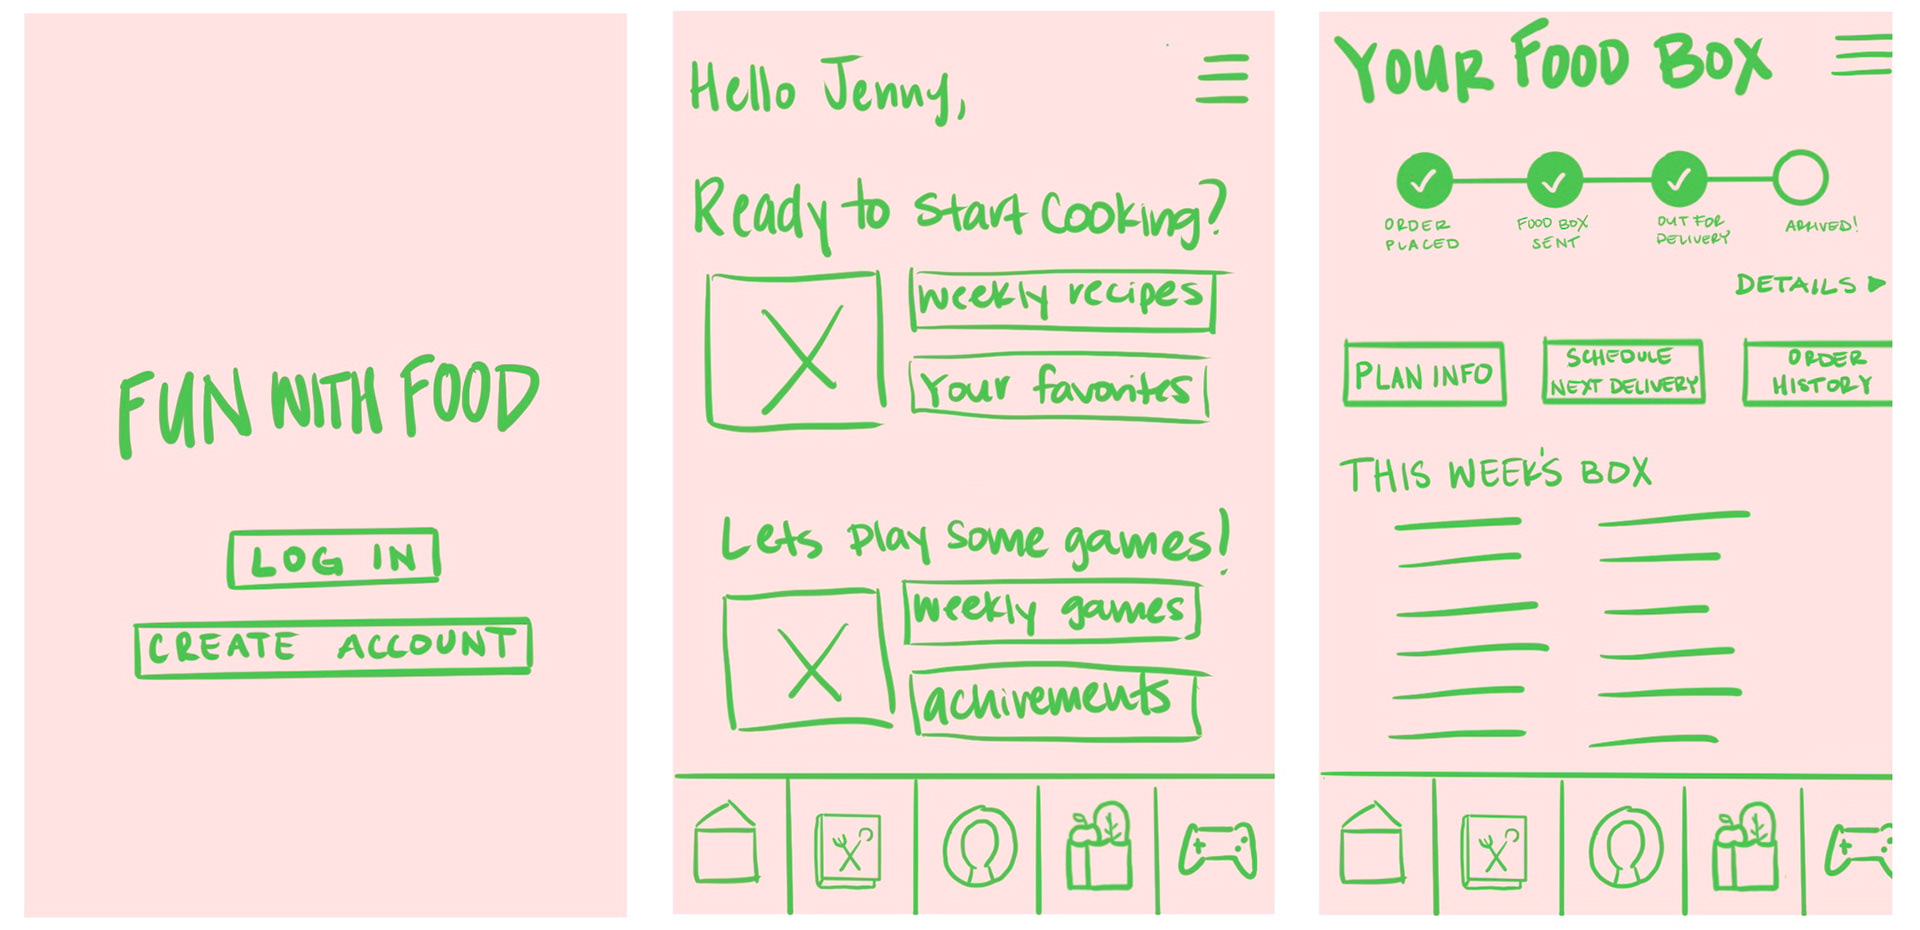 FUN WITH FOOD
LOG IN
CREATE ACCOUNT
Hello Jenny,
Ready to start cooking?
weekly recipes
Your favorites
Lets play some games!
weekly games
achirements
YOUR FOOD BOX
ORDER
PLACED
FOOD BOX
SENT
OUT FOR
DELIVERY
ARRIVED!
DETAILS
PLAN INFO
SCHEDULE
NEXT DELIVERY
ORDER
HISTORY
THIS WEEK'S BOX